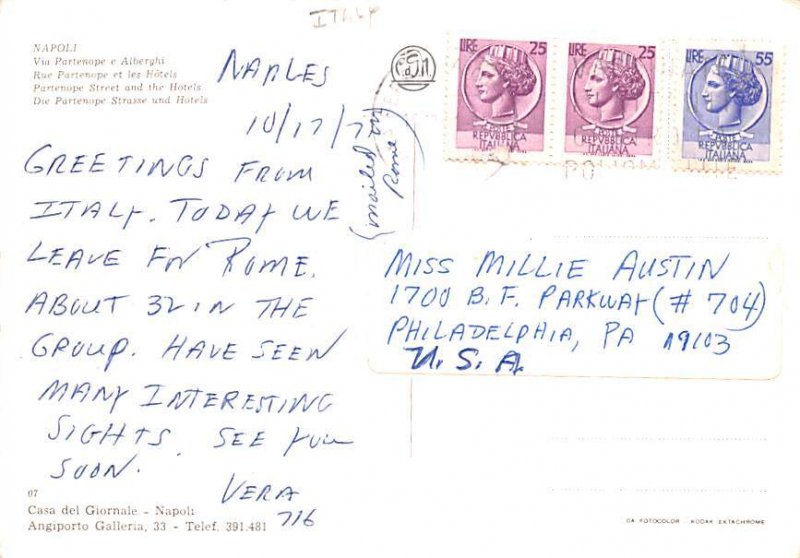 ITALY
NAPOLI
Via Partenope e Alberghi
Rue Partenope et les Hôtels
Partenope Street and the Hotels
Die Partenope Strasse und Hotels
NAPLES
10/17/7
(mailed in
Rome)
GREETINGS FROM
ITALY. TODAY WE
LEAVE FOR ROME.
ABOUT 32 IN THE
GROUP. HAVE SEEN
MANY INTERESTING
SIGHTS. SEE YOU
SOON.
VERA
716
LIRE 25
POSTE
REPVBBLICA
ITALIANA
LIRE 25
POSTE
REPVBBLICA
ITALIANA
LIRE 55
POSTE
REPVBBLICA
ITALIANA
MISS MILLIE AUSTIN
1700 B.F. PARKWAY (# 704)
PHILADELPHIA, PA 19103
U.S.A.
07
Casa del Giornale - Napoli
Angiporto Galleria, 33 - Telef. 391.481
CA FOTOCOLOR - KODAK EKTACHROME